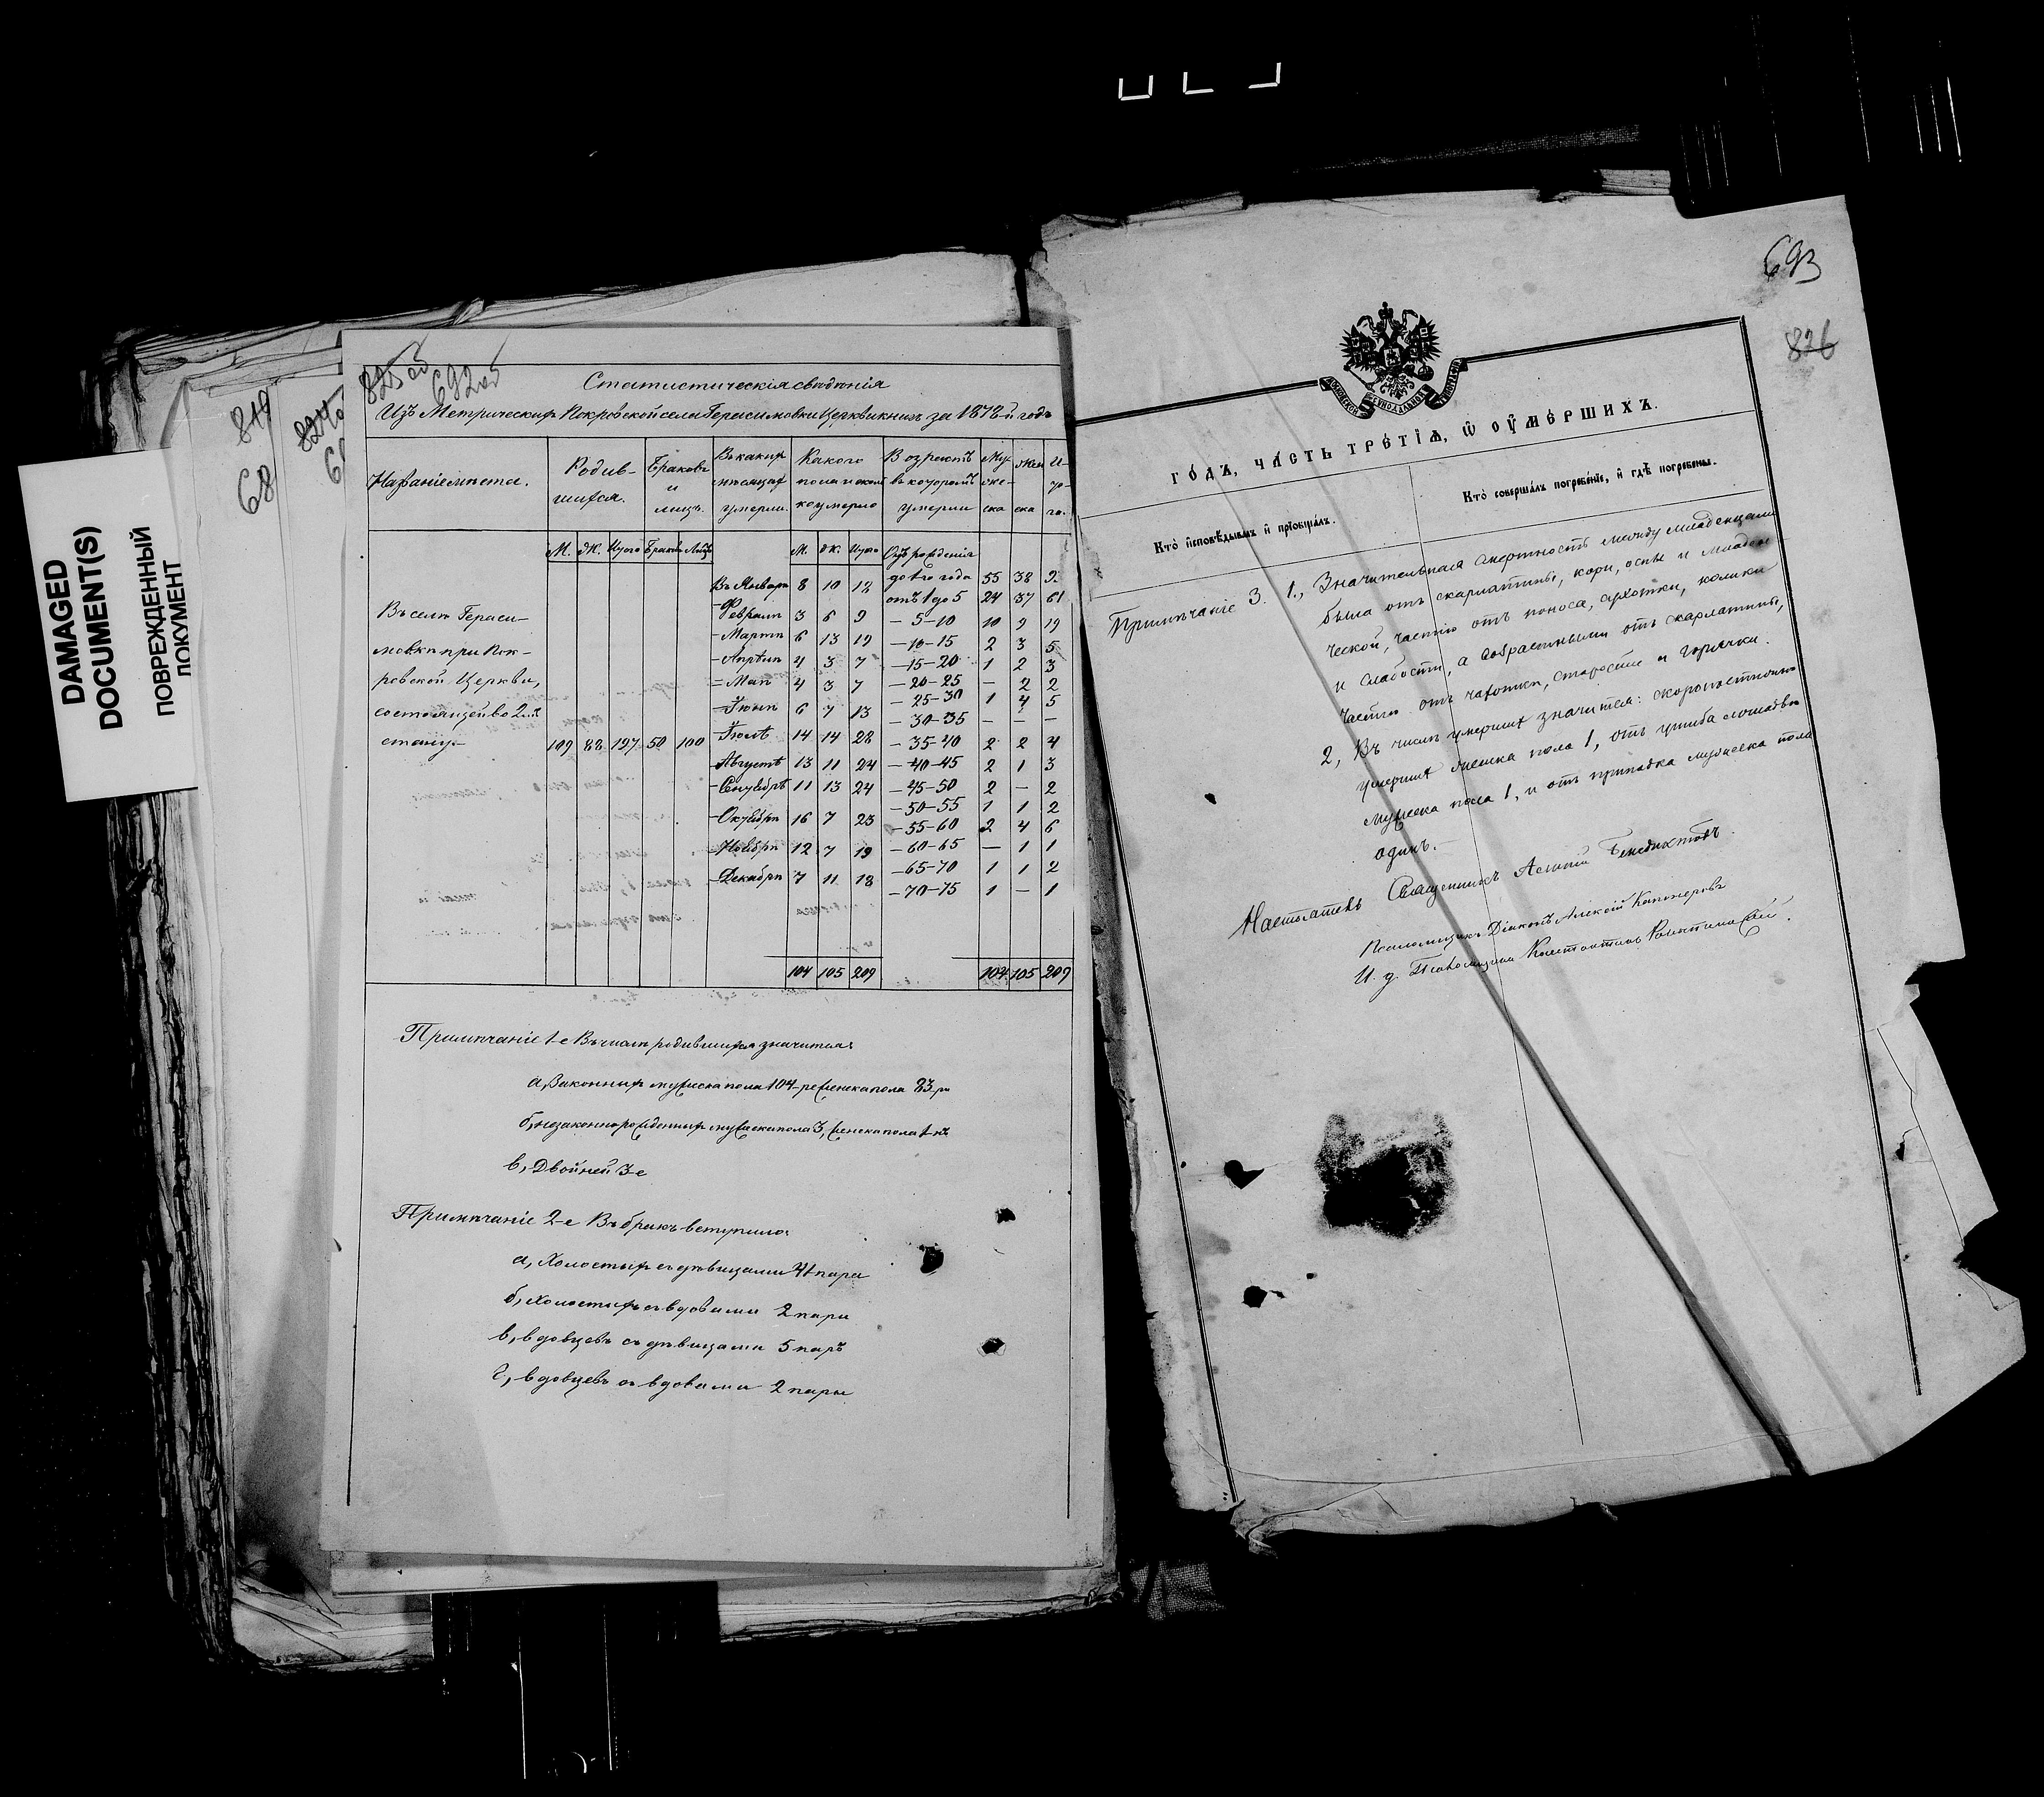 DAMAGED
DOCUMENT(S)
ПОВРЕЖДЕННЫЙ
ДОКУМЕНТ
819
68
824
825 об
692 об
Статистическія свѣдѣнія
Изъ Метрическихъ Покровской села Герасимовки Церкви книгъ за 1878й годъ
Названіе мѣста. Родив- Браковъ Въ какихъ Какого Возрастъ Му- Жен И-
шихся. и мѣсяцах пола и сколь въ которомъ жес- то-
лицъ. умерли ко умерло умерли ска ска го.
М. Ж. Итого Браков Лицъ М. Ж. Итого Отъ рожденія
Въ Январѣ 8 10 18 до 1го года 55 38 93
отъ 1 до 5 24 37 61
Въ селѣ Гераси- – Февралѣ 3 6 9 – 5–10 10 9 19
– Мартѣ 6 13 19 – 10–15 2 3 5
мовкѣ при Пок- – Апрѣлѣ 4 3 7 – 15–20 1 2 3
ровской Церкви, – Маѣ 4 3 7 – 20–25 – 2 2
– 25–30 1 4 5
состоящей во 2мъ – Іюнѣ 6 7 13 – 30–35 – – –
стану 109 88 197 50 100 – Іюлѣ 14 14 28 – 35–40 2 2 4
– Августѣ 13 11 24 – 40–45 2 1 3
– Сентябрѣ 11 13 24 – 45–50 2 – 2
– 50–55 1 1 2
– Октябрѣ 16 7 23 – 55–60 2 4 6
– Ноябрѣ 12 7 19 – 60–65 – 1 1
– 65–70 1 1 2
– Декабрѣ 7 11 18 – 70–75 1 – 1
104 105 209 104 105 209
Примѣчаніе 1-е Въ числѣ родившихся значится:
а, Законныхъ мужеска пола 104-ре женска пола 83-ри
б, незаконнорожденныхъ мужеска пола 3, женска пола 1-нъ
в, Двойней 3-е
Примѣчаніе 2-е Въ бракъ вступило:
а, Холостыхъ съ дѣвицами 41 пара
б, холостыхъ съ вдовами 2 пары
в, вдовцевъ съ дѣвицами 5 паръ
г, вдовцевъ съ вдовами 2 пары
693
826
ГОДЪ, ЧАСТЬ ТРЕТІѦ, Ѿ ОУМЕРШИХЪ.
Кто исповѣдывалъ и пріобщалъ.
Кто совершалъ погребеніе, и гдѣ погребены.
Примѣчаніе 3. 1., Значительная смертность между младенцами
была отъ скарлатины, кори, оспы и младен
ческой, частію отъ поноса, сухотки, колики
и слабости, а возрастными отъ скарлатины,
частію отъ чахотки, старости и горячки.
2, Въ числѣ умершихъ значится: скоропостижно
умершихъ женска пола 1, отъ ушиба лошадью
мужеска пола 1, и отъ припадка мужеска пола
одинъ.–
Настоятель Священникъ Бенедиктовъ
Псаломщикъ Діаконъ Алексій
И. д. Псаломщика Константинъ